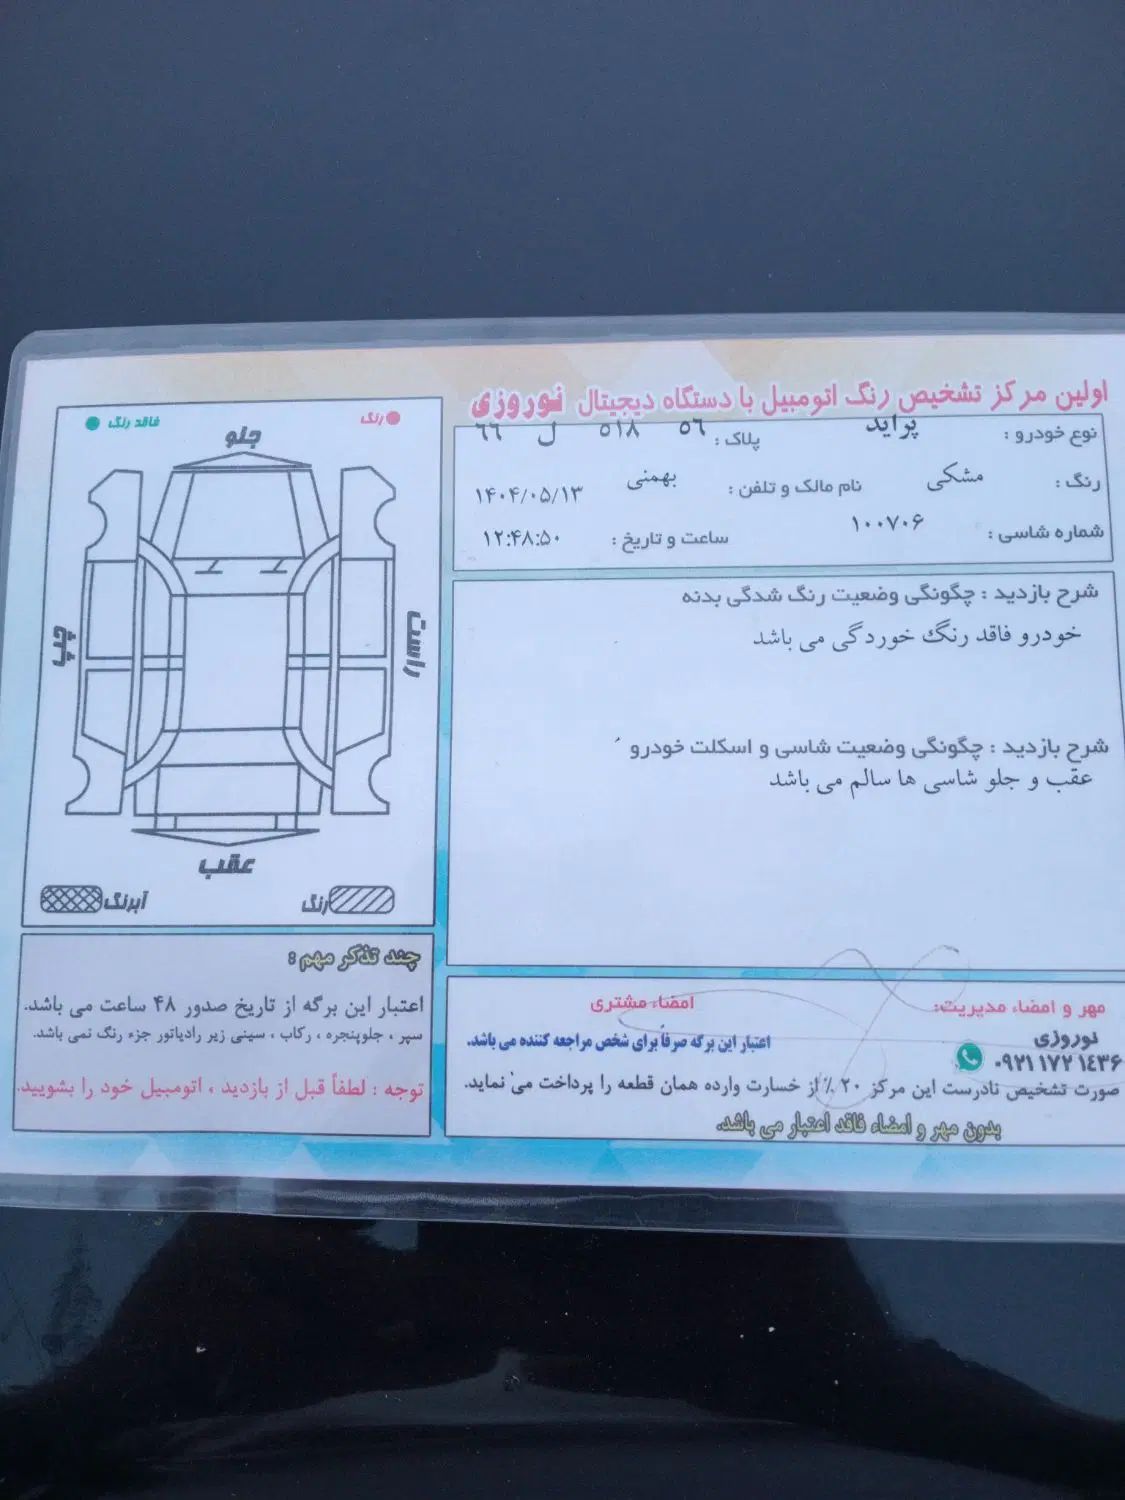 اولین مرکز تشخیص رنگ اتومبیل با دستگاه دیجیتال نوروزی
نوع خودرو : پراید
پلاک : ۵۶ ۵۱۸ ل ۶۶
رنگ : مشکی
نام مالک و تلفن : بهمنی
۱۴۰۴/۰۵/۱۳
شماره شاسی : ۱۰۰۷۰۶
ساعت و تاریخ : ۱۲:۴۸:۵۰
شرح بازدید : چگونگی وضعیت رنگ شدگی بدنه
خودرو فاقد رنگ خوردگی می باشد
شرح بازدید : چگونگی وضعیت شاسی و اسکلت خودرو
عقب و جلو شاسی ها سالم می باشد
رنگ
فاقد رنگ
جلو
راست
چپ
عقب
رنگ
آبرنگ
چند تذکر مهم :
اعتبار این برگه از تاریخ صدور ۴۸ ساعت می باشد.
سپر ، جلوپنجره ، رکاب ، سینی زیر رادیاتور جزء رنگ نمی باشد.
توجه : لطفاً قبل از بازدید ، اتومبیل خود را بشویید.
مهر و امضاء مدیریت:
امضاء مشتری
نوروزی
۰۹۲۱ ۱۷۲ ۱۴۳۶
اعتبار این برگه صرفاً برای شخص مراجعه کننده می باشد.
صورت تشخیص نادرست این مرکز ۲۰ ٪ از خسارت وارده همان قطعه را پرداخت می نماید.
بدون مهر و امضاء فاقد اعتبار می باشد.